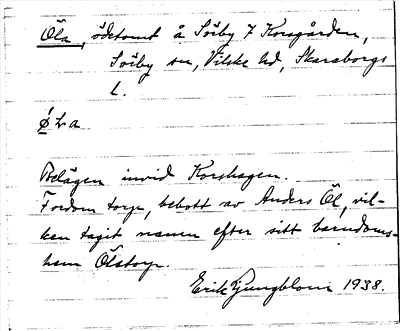 Öla, ödetomt å Sörby 7 Korsgården,
Sörby sn, Vilske hd, Skaraborgs
L.
ø̀ L a
Belägen invid Korshagen.
Fordom torp, bebott av Anders Öl, vil-
ken tagit namn efter sitt barndoms-
hem Ölstorp.
Erik Ljungblom 1938.